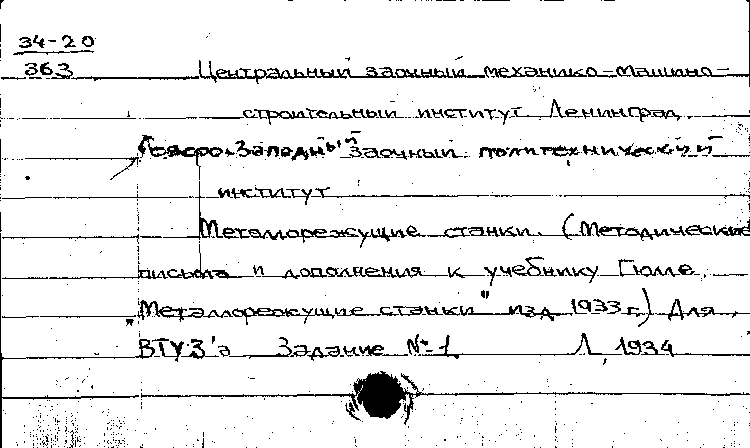 34-20
363
Центральный заочный механико-машино-
строительный институт Ленинград.
Северо-Западный заочный политехнический
институт
Металлорежущие станки. (Методические
письма и дополнения к учебнику Гюлле,
"Металлорежущие станки" изд. 1933 г.) Для
ВТУЗ'а Задание № 1 Л, 1934